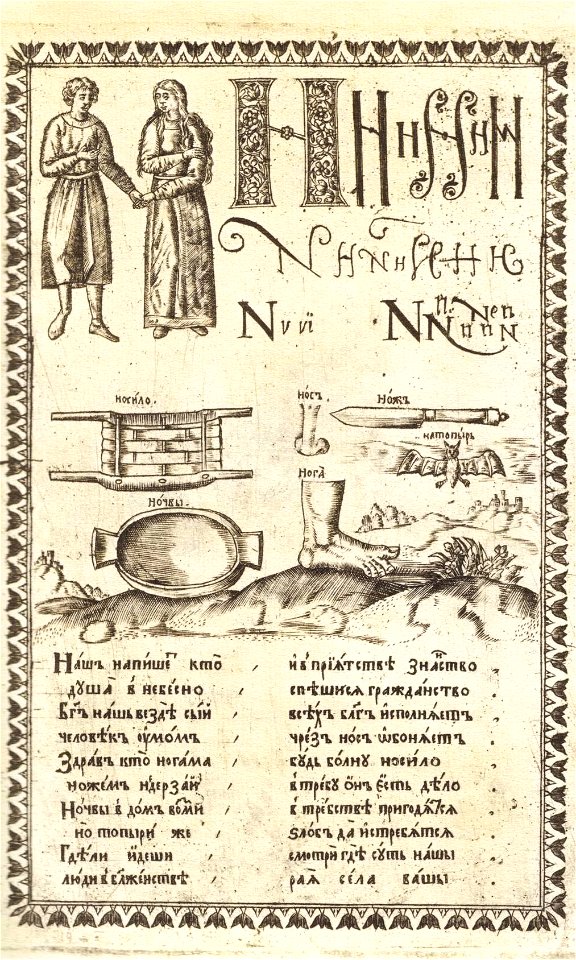 Н Н н Н н N
N Н N н И Н Н Ю
N ν νι
носило.
но́съ.
но́жъ
натопы́рь
Нога̀
но́чвы.
На́шъ напи́ше кто̀ и҆ в̾ прїѧ́тствѣ зна́иство
дꙋша̀ в̾ небе́сно спѣ́шисѧ гражда́нство
Бг҃ъ на́шъ вездѣ̀ сы́й всѣ́хъ бла́гъ и҆сполнѧ́етъ
человѣ́къ ᲂу҆мо́мъ чре́зъ но́съ ѡ҆бонѧ́етъ
Здра́въ кто̀ нога́ма бꙋ́дь бо́лнꙋ носи́ло
ноже́мъ не дерза́й в̾ тре́бꙋ о҆́нъ є҆́сть дѣ́ло
Но́чвы в̾ до́мъ возмѝ в̾ тре́бствѣ пригодѧ́тсѧ
но топыри́ же ѕло́бъ да и҆стребѧ́тсѧ
Гдѣ́ ли и҆́деши смотрѝ гдѣ̀ сꙋ́ть на́шы
лю́ди в̾ бл҃же́нствѣ раѧ̀ се́ла ва́шы